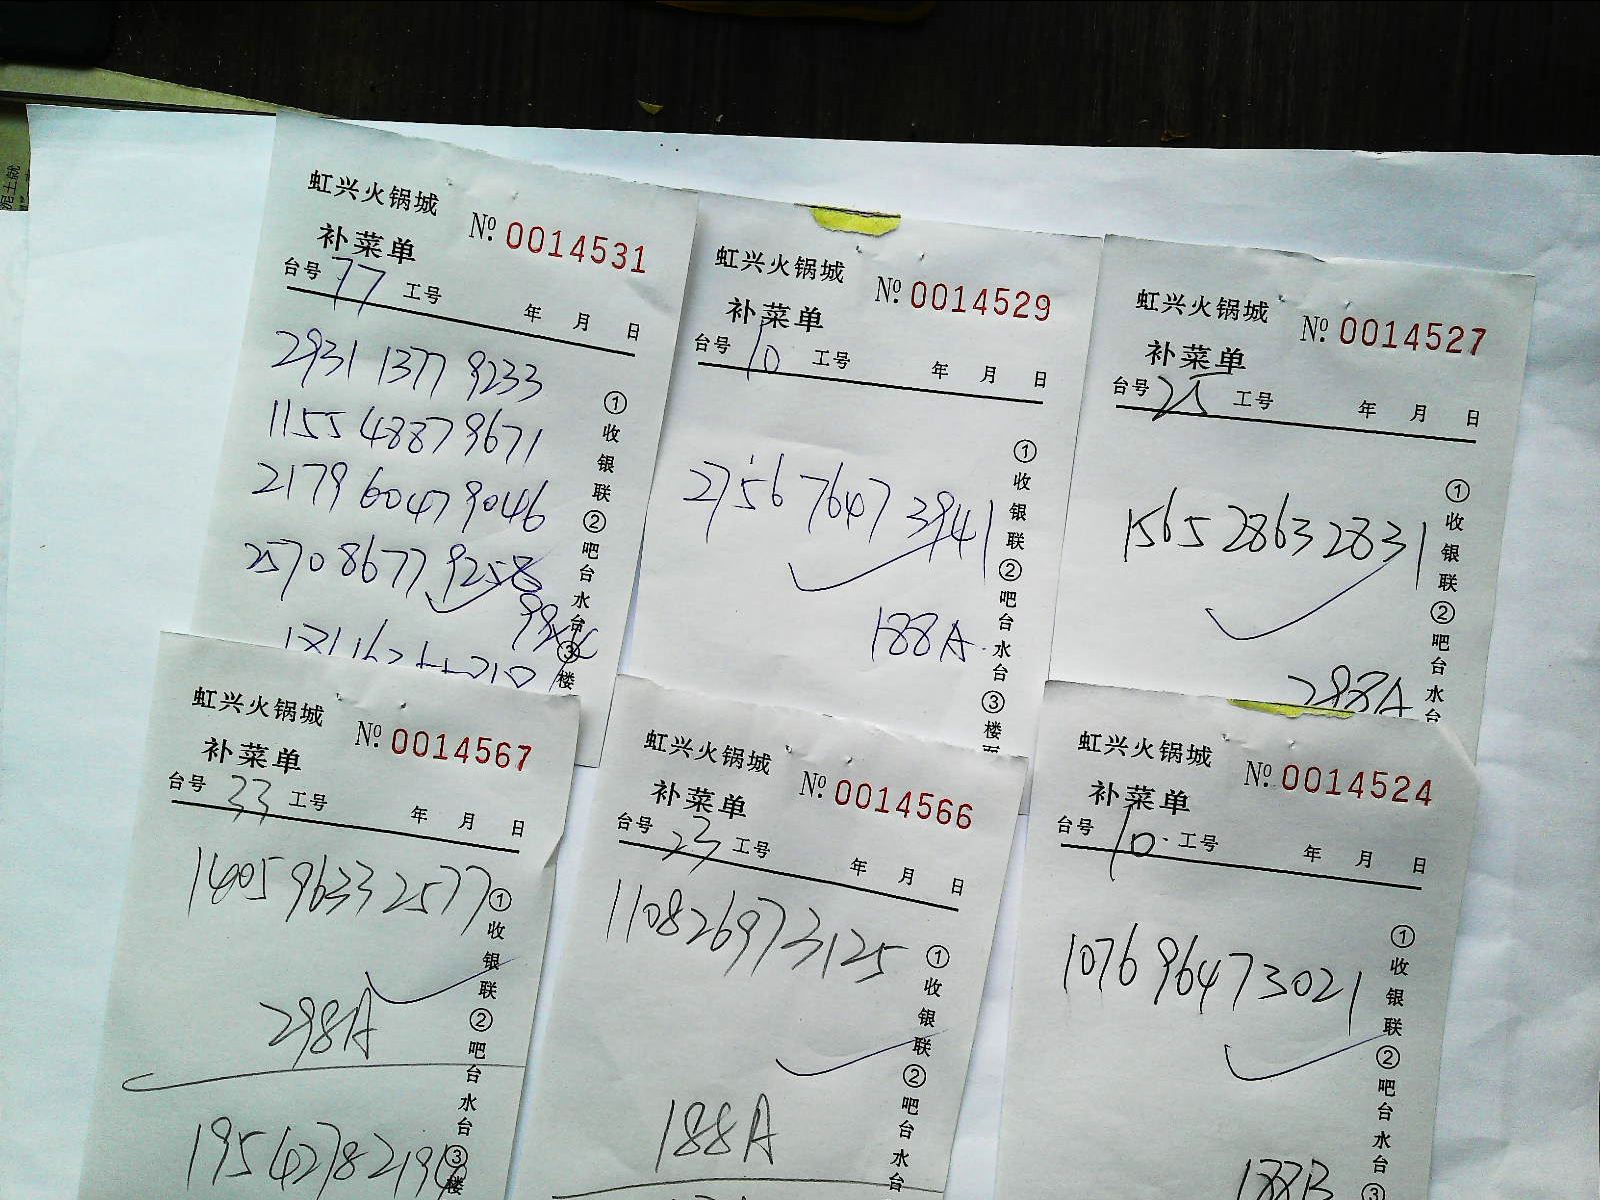 虹兴火锅城
№ 0014531
补菜单
台号 77 工号 年 月 日
2931 1377 9233
1155 4887 9671
2179 6047 9046
2570 8677 9258
①收银联②吧台水台③楼
虹兴火锅城
№ 0014529
补菜单
台号 10 工号 年 月 日
2756 7647 3941
188A
①收银联②吧台水台③楼
虹兴火锅城
№ 0014527
补菜单
台号 25 工号 年 月 日
1565 2863 2831
298A
①收银联②吧台水台
虹兴火锅城
№ 0014567
补菜单
台号 33 工号 年 月 日
1405 9633 2577
298A
①收银联②吧台水台③楼
虹兴火锅城
№ 0014566
补菜单
台号 23 工号 年 月 日
1108 2697 3125
188A
①收银联②吧台水台
虹兴火锅城
№ 0014524
补菜单
台号 10 工号 年 月 日
1076 9647 3021
188B
①收银联②吧台水台③